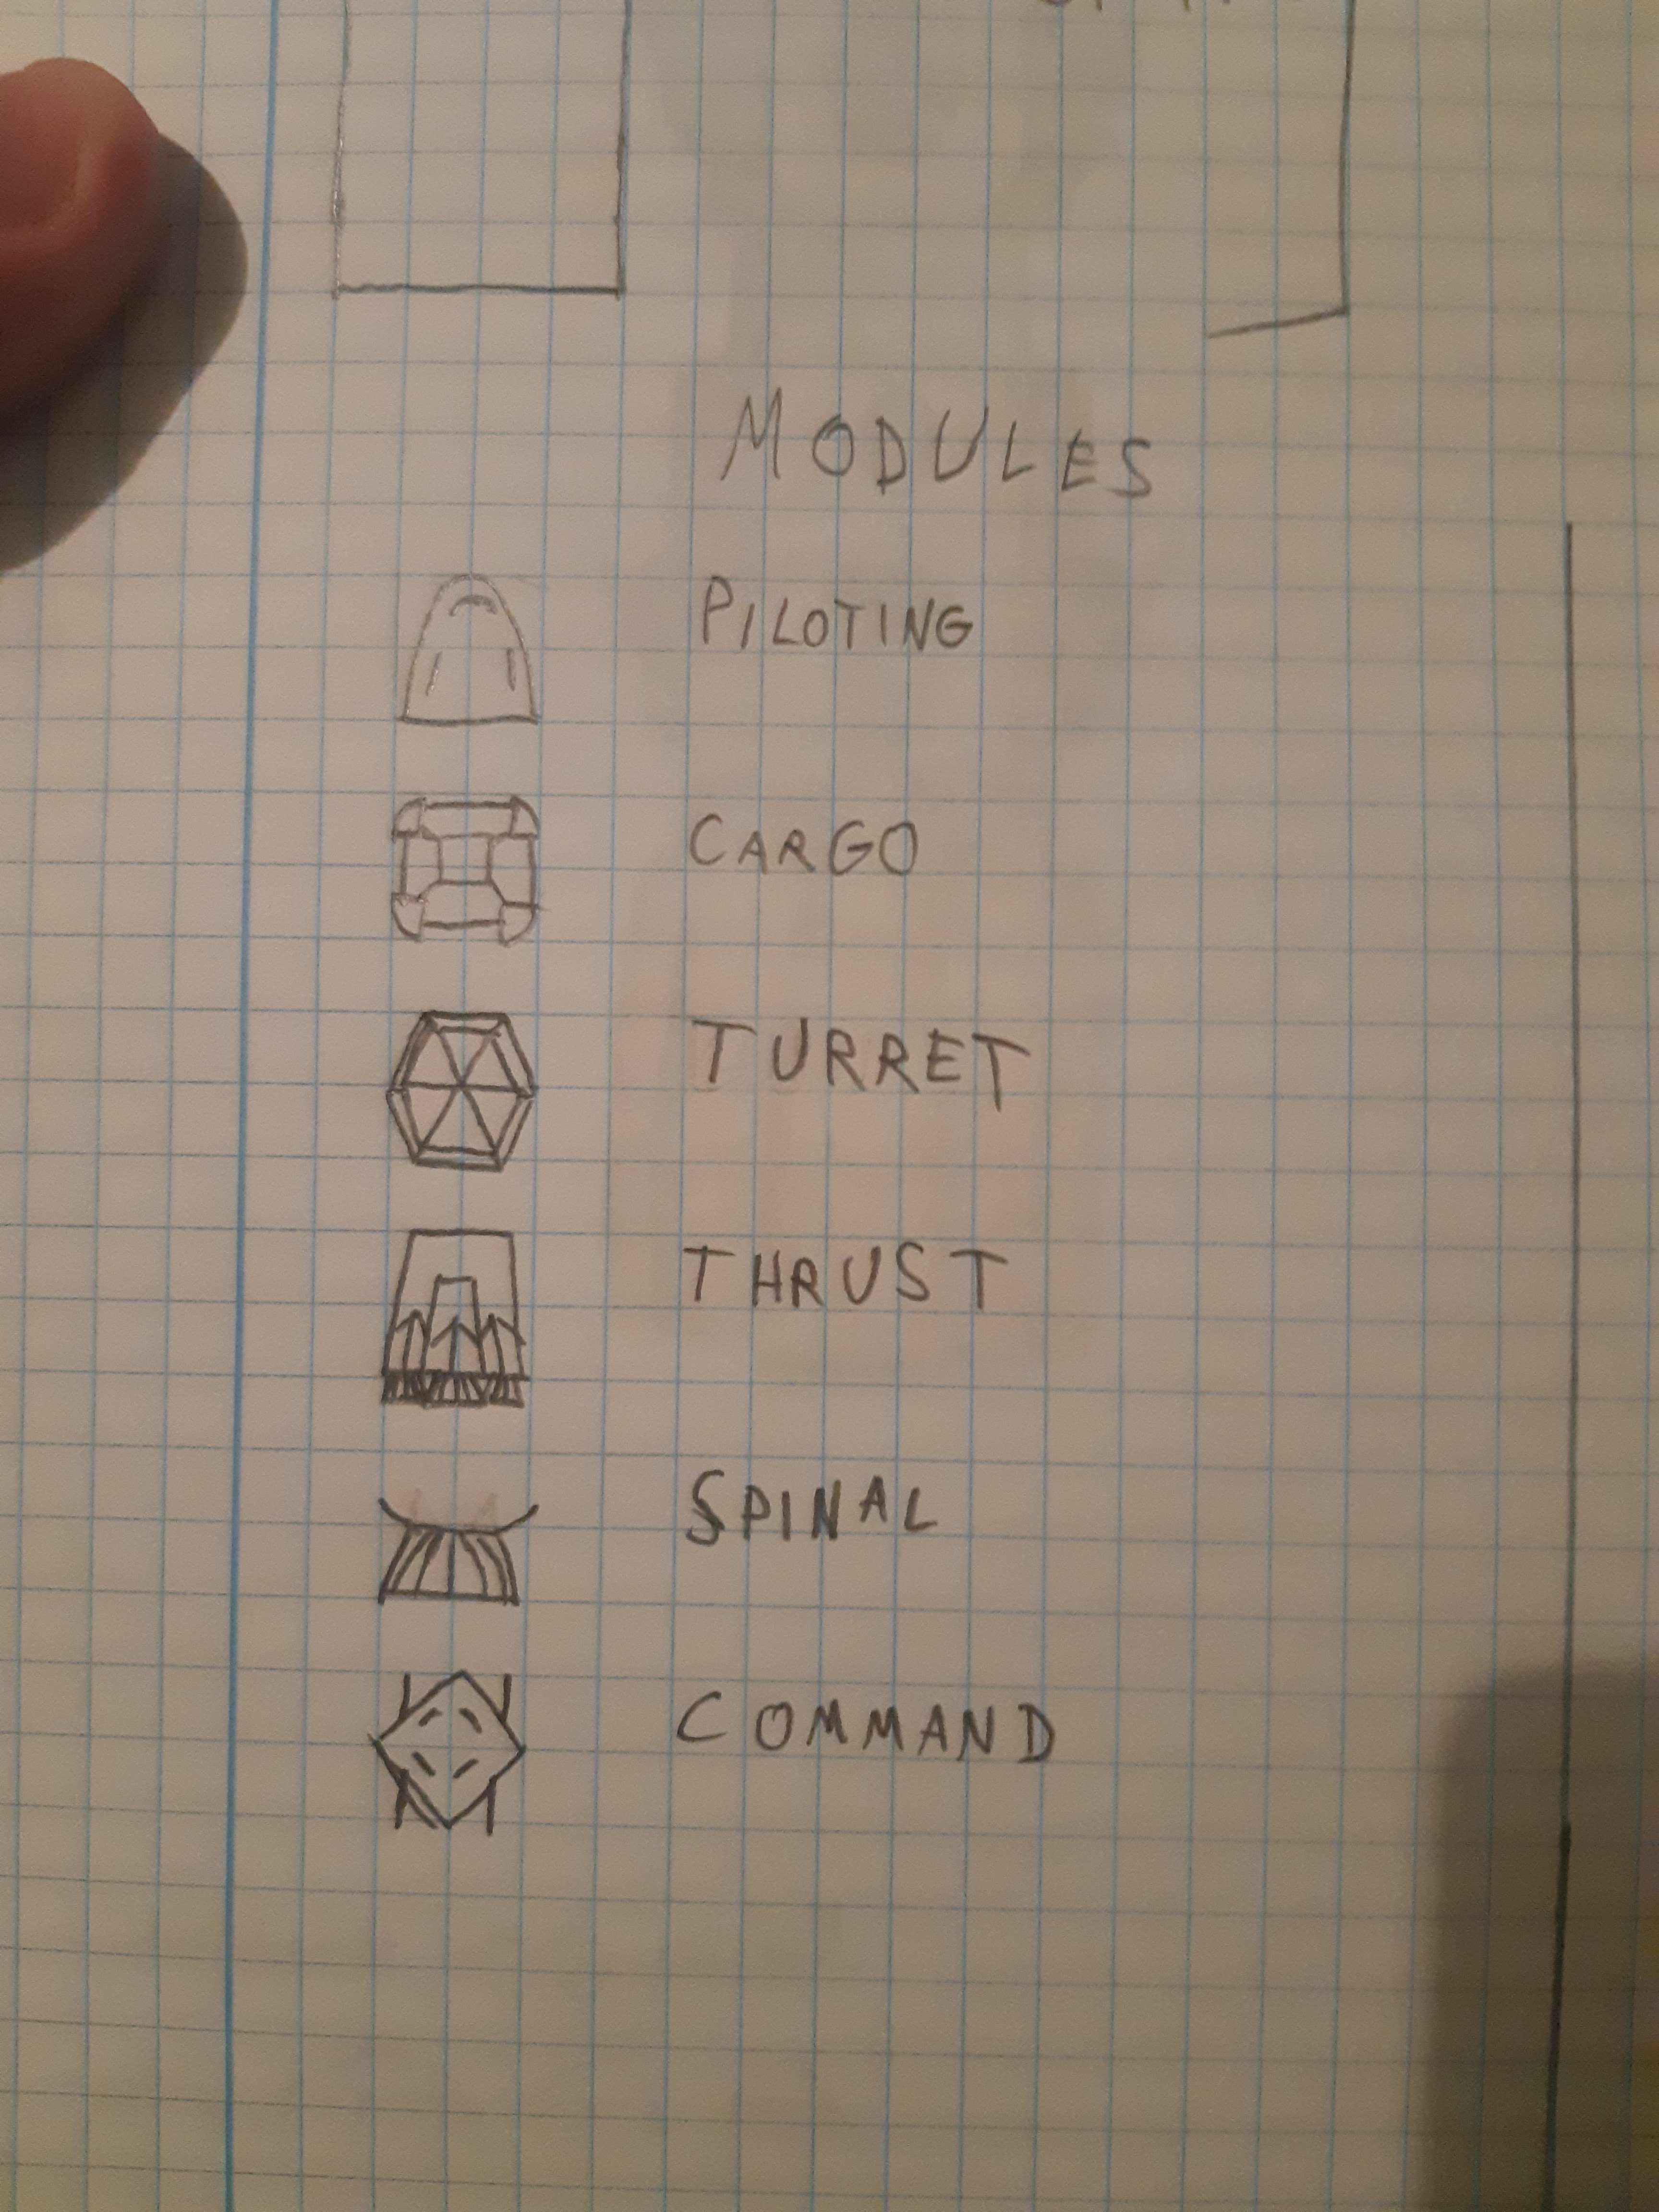 MODULES
PILOTING
CARGO
TURRET
THRUST
SPINAL
COMMAND